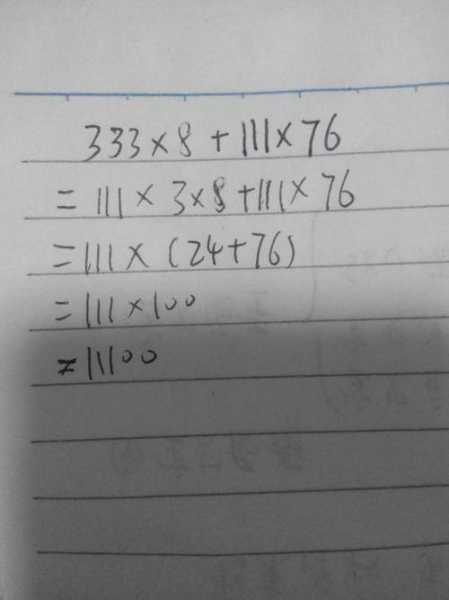 333×8+111×76
=111×3×8+111×76
=111×(24+76)
=111×100
=11100